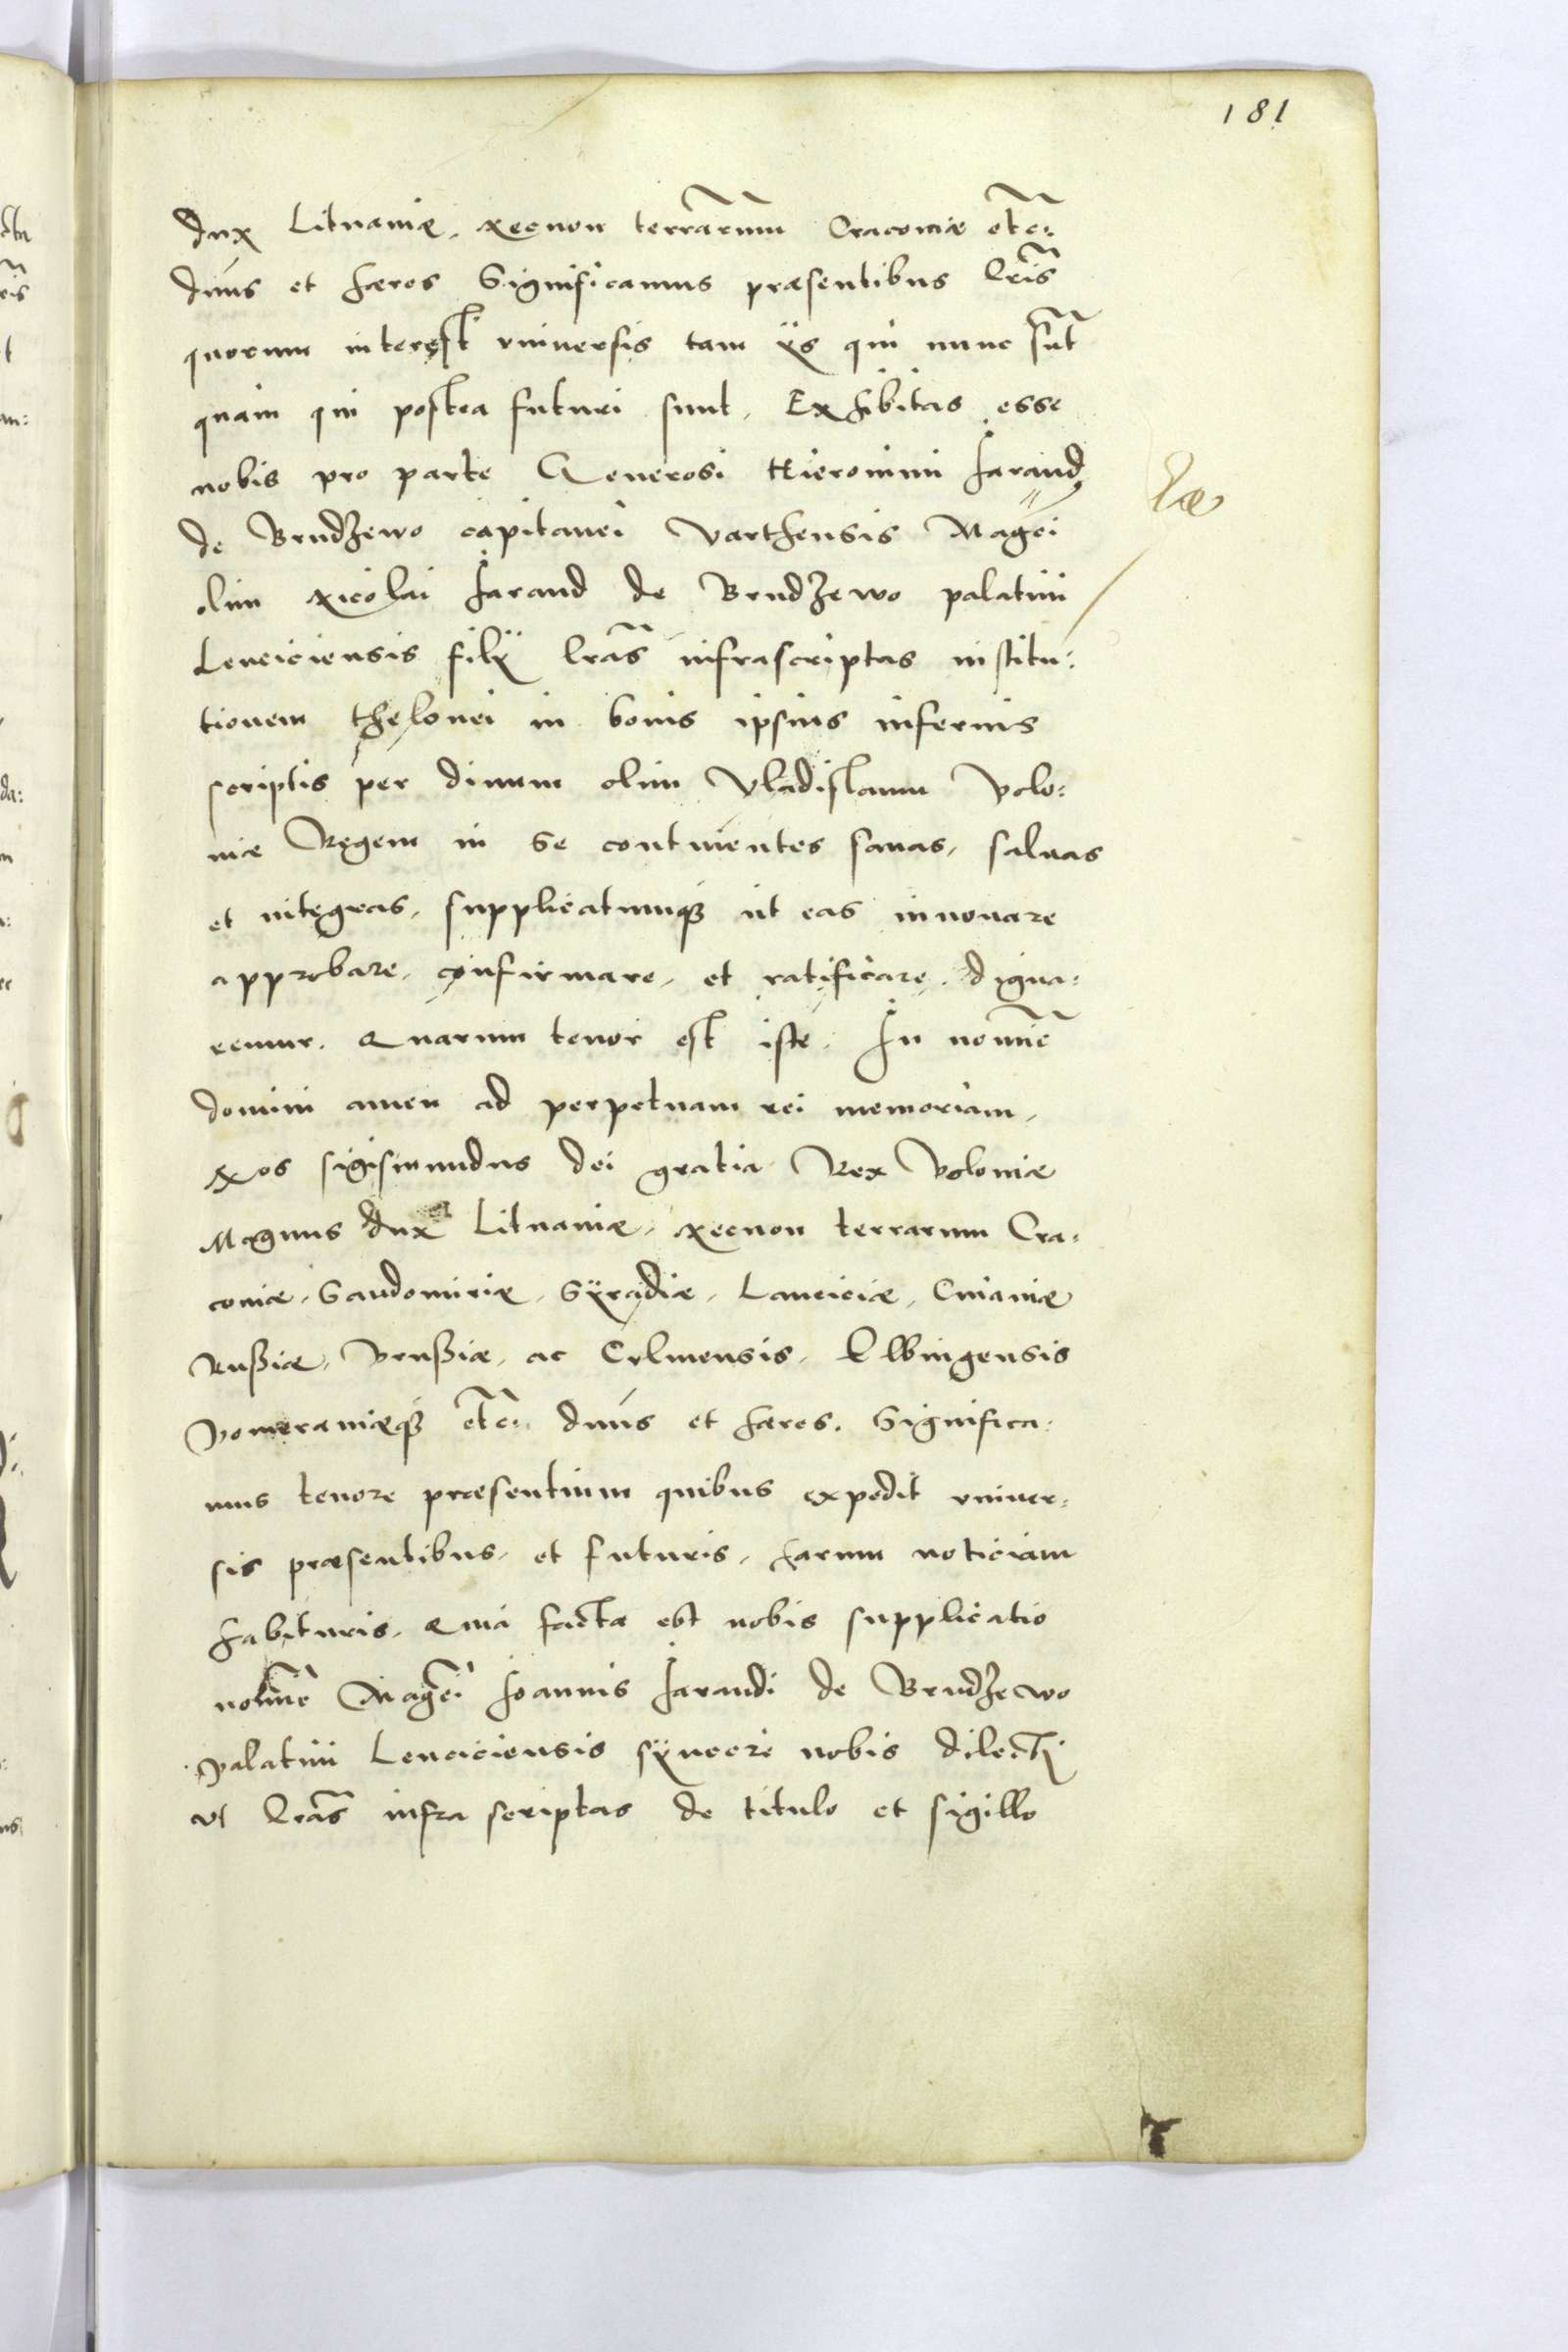 181
dux Lituaniæ, Necnon terrarum Cracoviæ etc:
dnus et hæres Significamus præsentibus lris
quorum interest universis tam ijs qui nunc sunt
quam qui postea futuri sunt, Exhibitas esse
nobis pro parte Generosi Hieronimi Jarand
de Brudzewo capitanei Varthensis Magci
olim Nicolai Jarand de Brudzewo palatini
Lenciciensis filij lras infrascriptas institu:
tionem thelonei in bonis ipsius inferius
scriptis per divum olim Vladislaum Polo:
niæ Regem in se continentes sanas, salvas
et integras, supplicatumq3 ut eas innovare
approbare, confirmare, et ratificare digna:
remur. Quarum tenor est iste. In nomine
domini amen ad perpetuam rei memoriam,
Nos sigismundus dei gratia Rex Poloniæ
Magnus dux Lituaniæ, Necnon terrarum Cra:
coviæ, Sandomiriæ, Syradiæ, Lanciciæ, Cuiaviæ
Russiæ, Prussiæ, ac Culmensis, Elbingensis
Pomeraniæq3 etc: dnus et hæres. Significa:
mus tenore præsentium quibus expedit univer:
sis præsentibus, et futuris, harum noticiam
habituris, Quia facta est nobis supplicatio
nomine Magci Joannis Jarandi de Brudzewo
palatini Lenciciensis syncere nobis dilecti
ut lras infra scriptas de titulo et sigillo